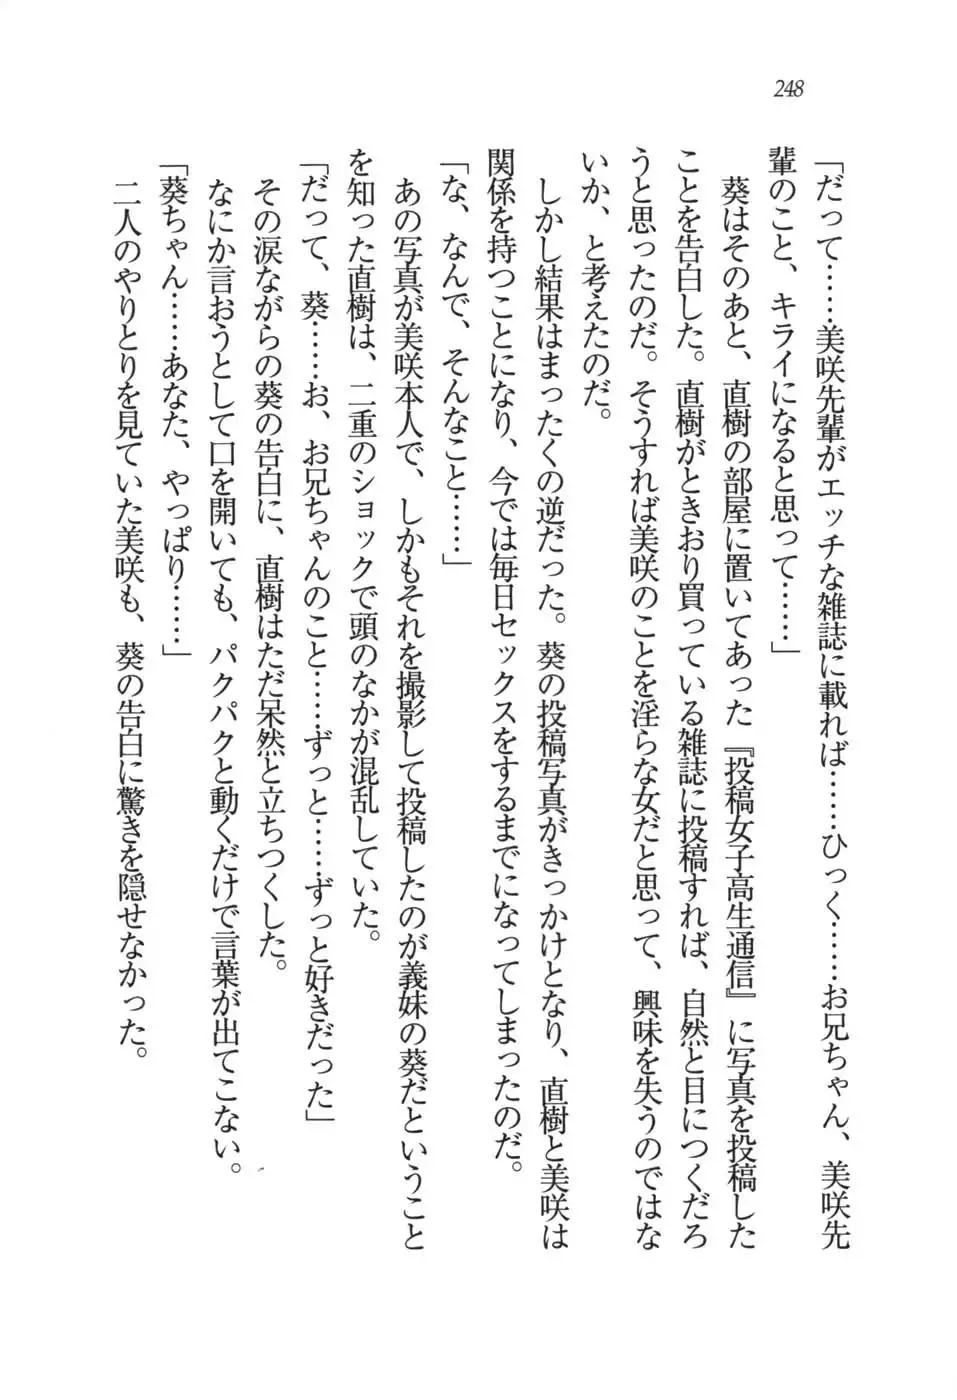 248
「だって……美咲先輩がエッチな雑誌に載れば……ひっく……お兄ちゃん、美咲先
輩のこと、キライになると思って……」
葵はそのあと、直樹の部屋に置いてあった『投稿女子高生通信』に写真を投稿した
ことを告白した。直樹がときおり買っている雑誌に投稿すれば、自然と目につくだろ
うと思ったのだ。そうすれば美咲のことを淫らな女だと思って、興味を失うのではな
いか、と考えたのだ。
しかし結果はまったくの逆だった。葵の投稿写真がきっかけとなり、直樹と美咲は
関係を持つことになり、今では毎日セックスをするまでになってしまったのだ。
「な、なんで、そんなこと……」
あの写真が美咲本人で、しかもそれを撮影して投稿したのが義妹の葵だということ
を知った直樹は、二重のショックで頭のなかが混乱していた。
「だって、葵……お、お兄ちゃんのこと……ずっと……ずっと好きだった」
その涙ながらの葵の告白に、直樹はただ呆然と立ちつくした。
なにか言おうとして口を開いても、パクパクと動くだけで言葉が出てこない。
「葵ちゃん……あなた、やっぱり……」
二人のやりとりを見ていた美咲も、葵の告白に驚きを隠せなかった。